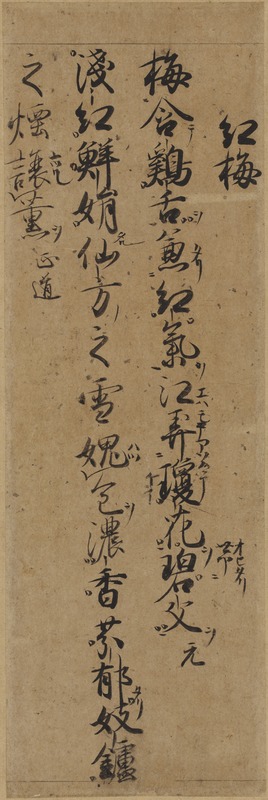 紅梅
梅含鷄舌兼紅氣江弄瓊花碧文 元
淺紅鮮娟仙方之雪媿色濃香芬郁妓鑪
之煙讓薰 正道